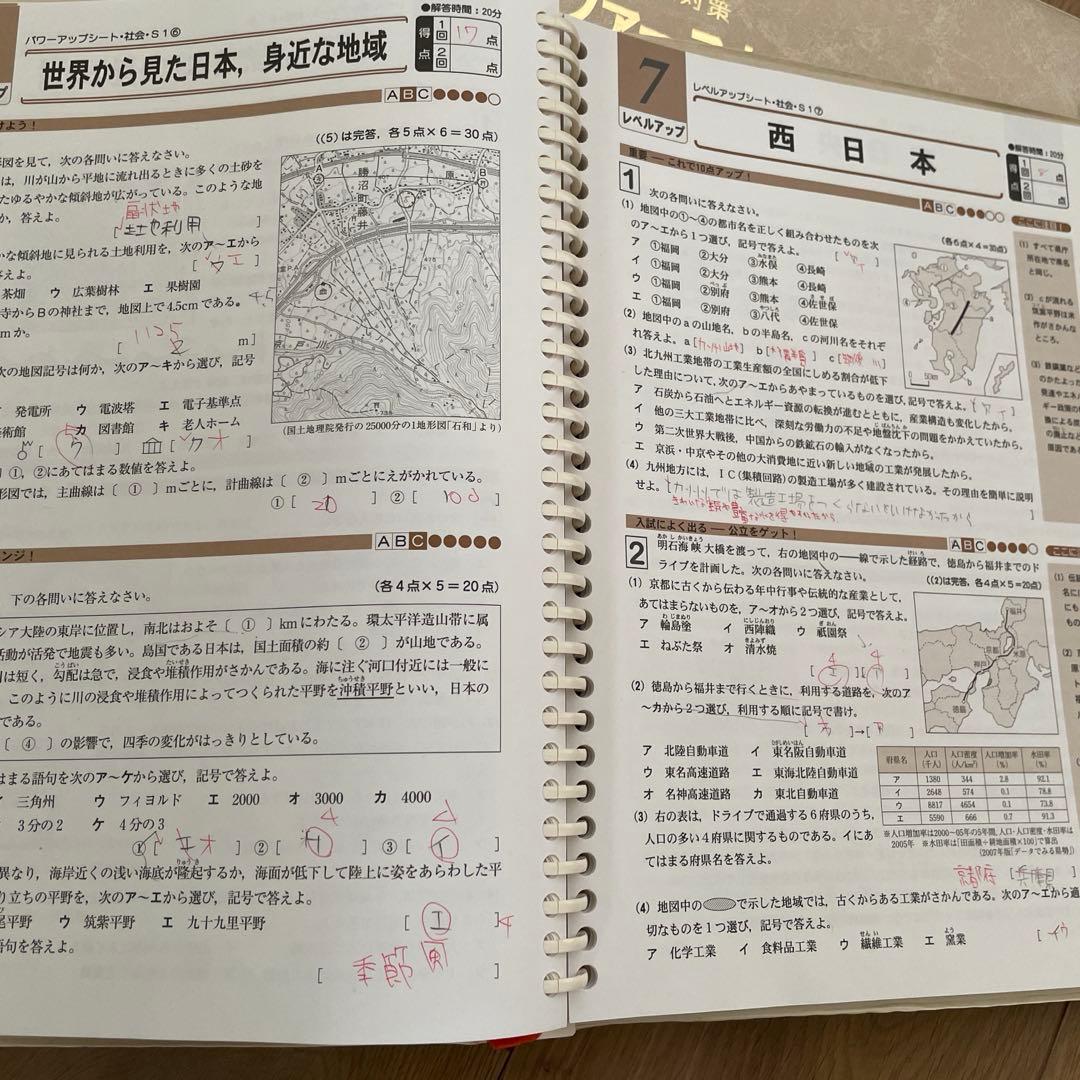 パワーアップシート・社会・S1⑥
世界から見た日本，身近な地域
●解答時間：20分
得点
1回 17 点
2回 点
ABC●●●●○
けよう！
((5)は完答，各5点×6＝30点)
形図を見て，次の各問いに答えなさい。
は，川が山から平地に流れ出るときに多くの土砂を
たゆるやかな傾斜地が広がっている。このような地
か，答えよ。
扇状地
[土地利用 ]
かな傾斜地に見られる土地利用を，次のア～エから
答えよ。
茶畑 ウ 広葉樹林 エ 果樹園
寺からBの神社まで，地図上で4.5cmである。
mか。
[ 1125 m]
次の地図記号は何か，次のア～キから選び，記号
発電所 ウ 電波塔 エ 電子基準点
美術館 カ 図書館 キ 老人ホーム
勝沼町藤井
原
A
B
(国土地理院発行の25000分の1地形図「石和」より)
①，②にあてはまる数値を答えよ。
形図では，主曲線は〔 ① 〕mごとに，計曲線は〔 ② 〕mごとにえがかれている。
①[ 20 ] ②[ 100 ]
ンジ！
ABC●●●●●
(各4点×5＝20点)
下の各問いに答えなさい。
シア大陸の東岸に位置し，南北はおよそ〔 ① 〕kmにわたる。環太平洋造山帯に属
活動が活発で地震も多い。島国である日本は，国土面積の約〔 ② 〕が山地である。
は短く，勾配は急で，浸食や堆積作用がさかんである。海に注ぐ河口付近には一般に
このように川の浸食や堆積作用によってつくられた平野を沖積平野といい，日本の
である。
〔 ④ 〕の影響で，四季の変化がはっきりとしている。
はまる語句を次のア～ケから選び，記号で答えよ。
三角州 ウ フィヨルド エ 2000 オ 3000 カ 4000
3分の2 ケ 4分の3
異なり，海岸近くの浅い海底が隆起するか，海面が低下して陸上に姿をあらわした平
り立ちの平野を，次のア～エから選び，記号で答えよ。
尾平野 ウ 筑紫平野 エ 九十九里平野 [ エ ]4
語句を答えよ。
[ 季節風 ]
対策
7
レベルアップ
レベルアップシート・社会・S1⑦
西日本
●解答時間：20分
得点
1回 8 点
2回 点
重要 ― これで10点アップ！
ABC●●●○○
1 次の各問いに答えなさい。
(各6点×4＝30点)
(1) 地図中の①～④の都市名を正しく組み合わせたものを次
のア～エから1つ選び，記号で答えよ。
ア ①福岡 ②大分 ③水俣 ④長崎
イ ①福岡 ②大分 ③熊本 ④長崎
ウ ①福岡 ②別府 ③熊本 ④佐世保
エ ①福岡 ②別府 ③八代 ④佐世保
(2) 地図中のaの山地名，bの半島名，cの河川名をそれぞ
れ答えよ。
(3) 北九州工業地帯の工業生産額の全国にしめる割合が低下
した理由について，次のア～エからあやまっているものを選び，記号で答えよ。
ア 石炭から石油へとエネルギー資源の転換が進むとともに，産業構造も変化したから。
イ 他の三大工業地帯に比べ，深刻な労働力の不足や地盤沈下の問題をかかえていたから。
ウ 第二次世界大戦後，中国からの鉄鉱石の輸入がなくなったから。
エ 京浜・中京やその他の大消費地に近い新しい地域の工業が発展したから。
(4) 九州地方には，IC(集積回路)の製造工場が多く建設されている。その理由を簡単に説明
せよ。
0 50km
(1) すべて県庁
所在地で県名
と同じ。
(2) cが流れる
筑紫平野は米
作がさかんな
ところ。
入試によく出る ― 公立をゲット！
ABC●●●●○
2 明石海峡大橋を渡って，右の地図中の━━線で示した経路で，徳島から福井までのド
ライブを計画した。次の各問いに答えなさい。
((2)は完答，各4点×5＝20点)
(1) 京都に古くから伝わる年中行事や伝統的な産業として，
あてはまらないものを，ア～オから2つ選び，記号で答えよ。
ア 輪島塗 イ 西陣織 ウ 祇園祭
エ ねぶた祭 オ 清水焼
福井
京都
米原
神戸
徳島
(2) 徳島から福井まで行くときに，利用する道路を，次のア
～カから2つ選び，利用する順に記号で書け。
ア 北陸自動車道 イ 東名阪自動車道
ウ 東名高速道路 エ 東海北陸自動車道
オ 名神高速道路 カ 東北自動車道
(3) 右の表は，ドライブで通過する6府県のうち，
人口の多い4府県に関するものである。イにあ
てはまる府県名を答えよ。
府県名 人口(千人) 人口密度(人/km²) 人口増加率(%) 水田率(%)
ア 1380 344 2.8 92.1
イ 2648 574 0.1 78.8
ウ 8817 4654 0.1 73.8
エ 5590 666 0.7 91.3
※人口増加率は2000～05年の5年間，人口・人口密度・水田率は
2005年 ※水田率は「田面積÷耕地面積×100」で算出
(2007年版「データでみる県勢」)
京都府 [兵庫県 ]
(4) 地図中の で示した地域では，古くからある工業がさかんである。次のア～エから適
切なものを1つ選び，記号で答えよ。
ア 化学工業 イ 食料品工業 ウ 繊維工業 エ 窯業